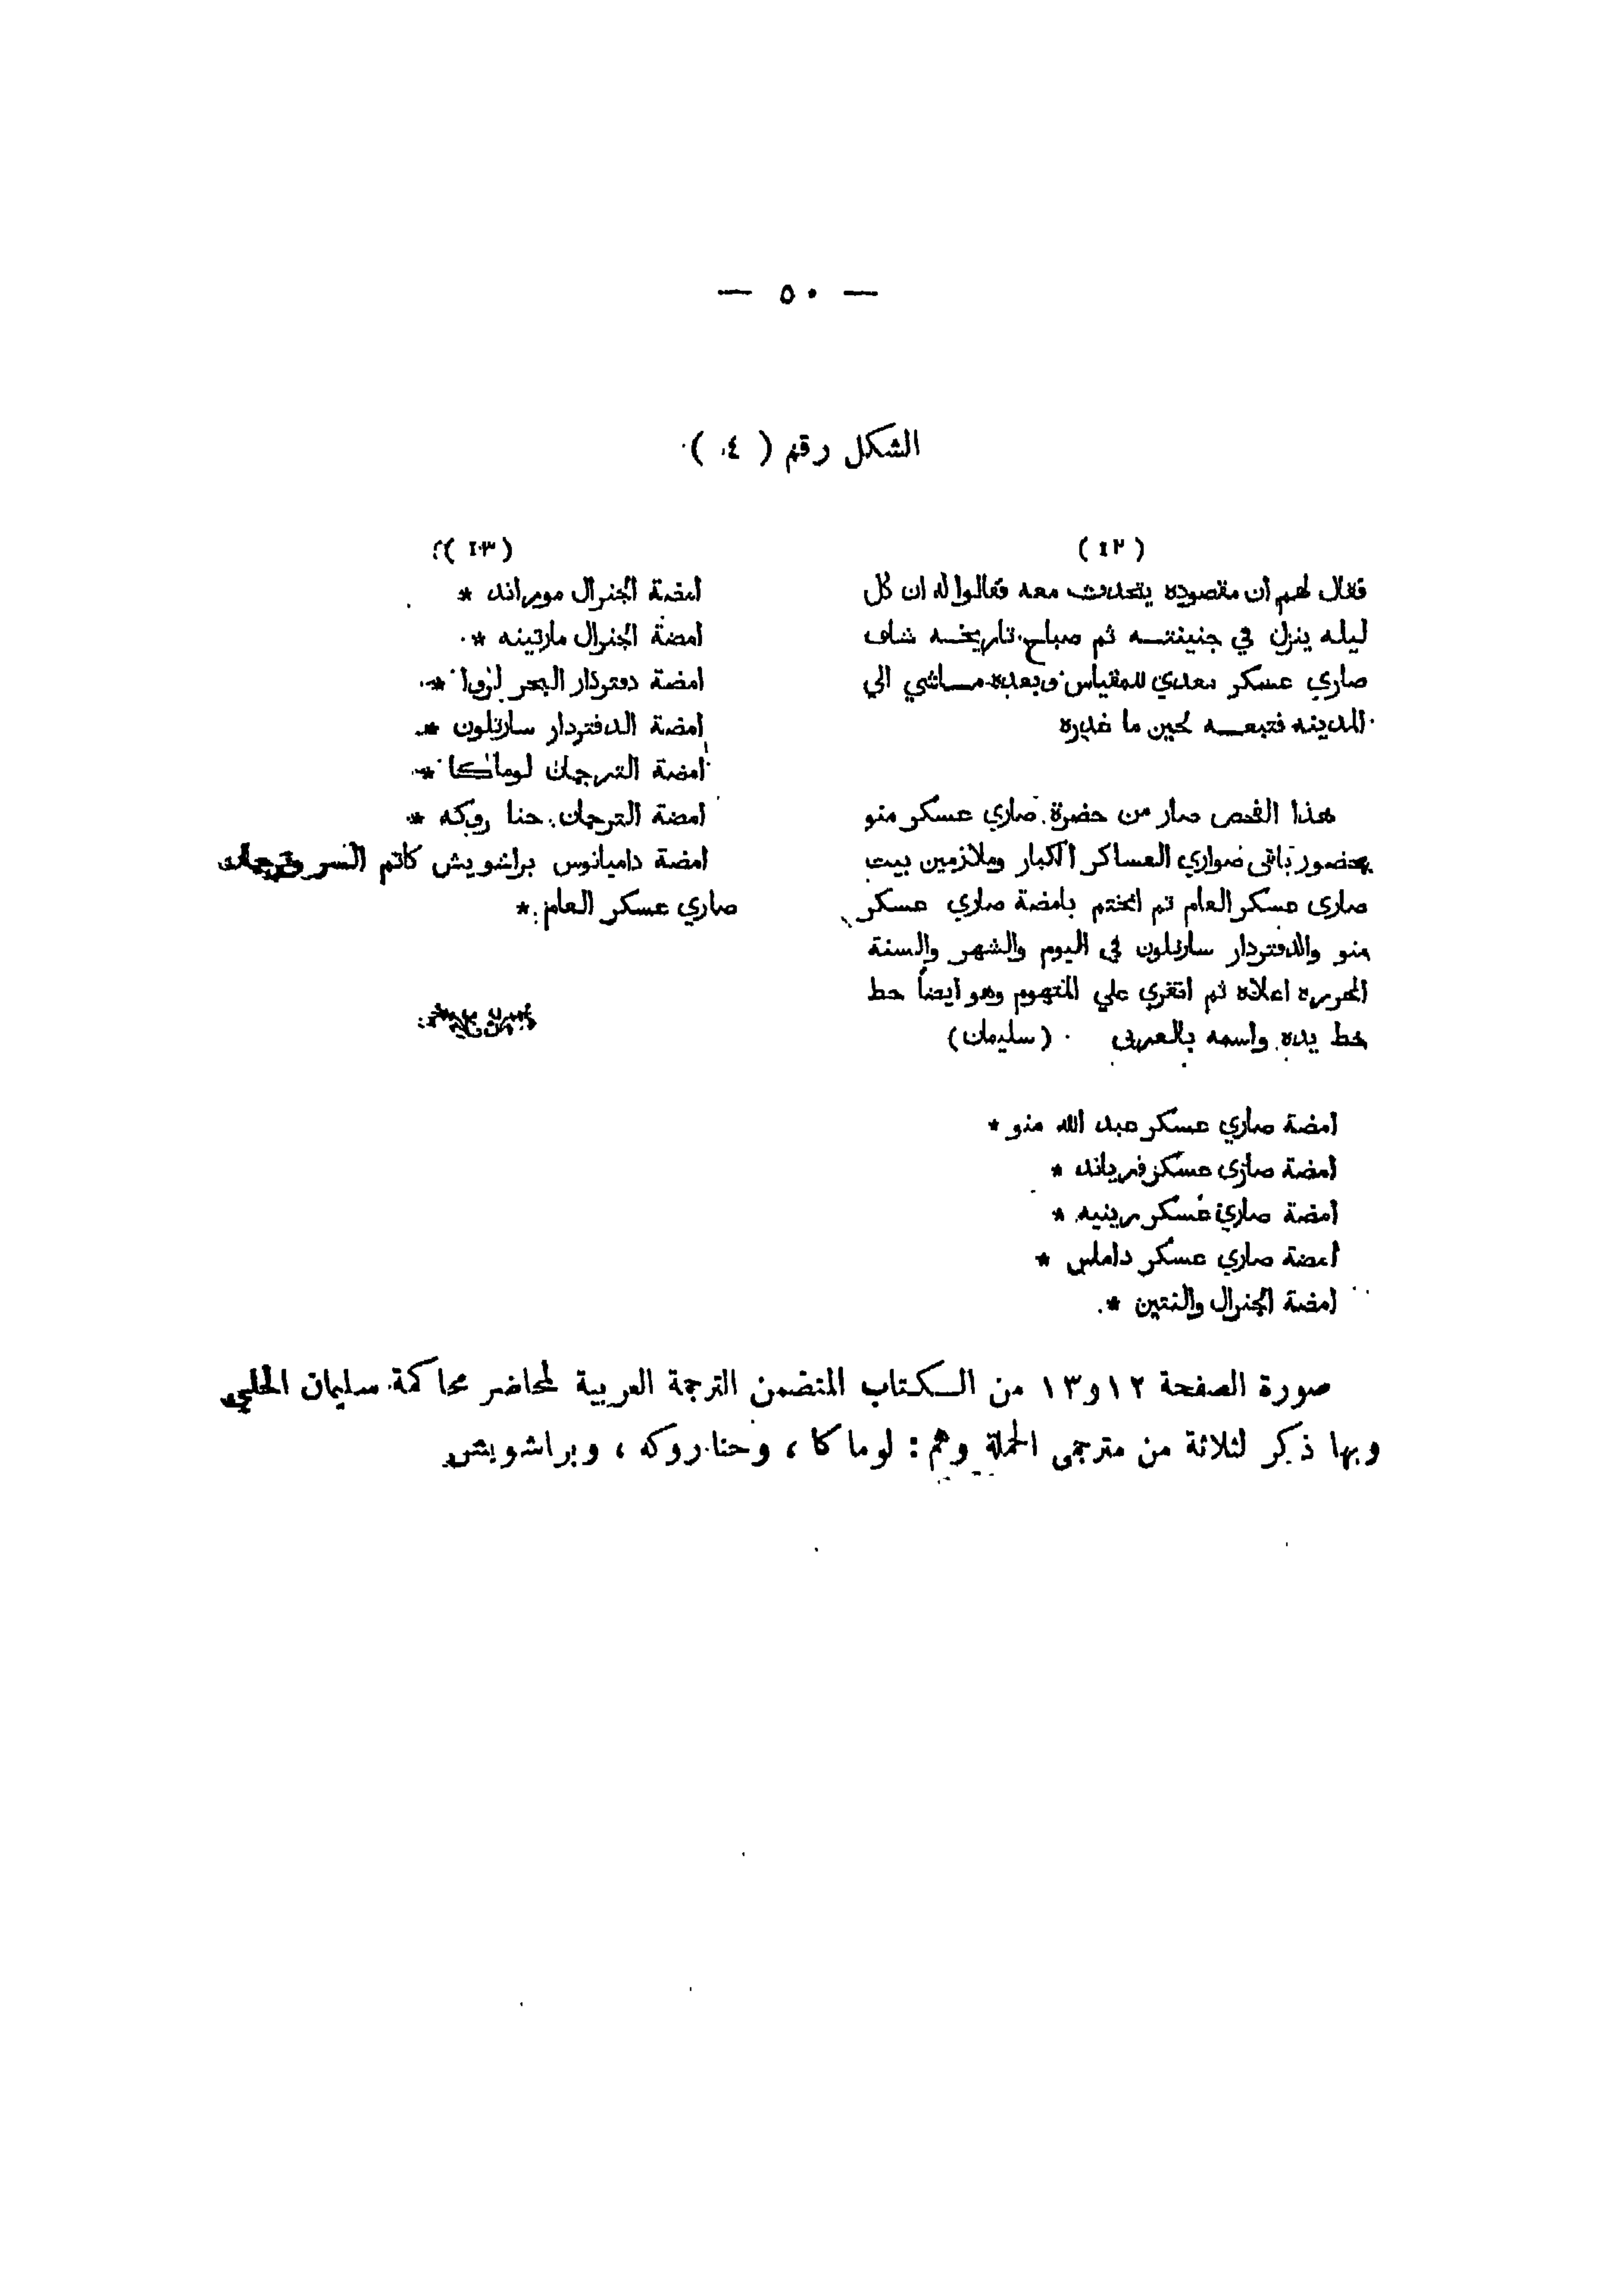 — ٥٠ —
الشكل رقم ( ٤ )
( ١٢ )
فقال لهم ان مقصوده يتحدث معه فقالوا له ان كل
ليله ينزل في جنينته ثم صباح تاريخه شاف
صاري عسكر معدي للمقياس وبعده ماشي الي
المدينه فتبعه لحين ما غدره
هذا الفحص صار من حضرة صاري عسكر منو
بحضور باقى ضواري العساكر الكبار وملازمين بيت
صارى عسكر العام ثم انختم بامضة صاري عسكر
منو والدفتردار سارتلون فى اليوم والشهر والسنة
المحرره اعلاه ثم انقري علي المتهوم وهو ايضاً حط
خط يده واسمه بالعربى (سليمان)
امضة صاري عسكر عبد الله منو *
امضة صاري عسكر فرياند *
امضة صاري عسكر رينيه *
امضة صاري عسكر داماس *
امضة الجنرال والنتين *
( ١٣ )
امضة الجنرال موراند *
امضة الجنرال مارتينه *
امضة دفتردار البحر لروا *
امضة الدفتردار سارتلون *
امضة الترجمان لوماكا *
امضة الترجمان حنا روكه *
امضة داميانوس براشويش كاتم السر وترجمان
صاري عسكر العام *
صورة الصفحة ١٢ و١٣ من الكتاب المتضمن الترجمة العربية لمحاضر محاكمة سليمان الحلبي
وبها ذكر لثلاثة من مترجمى الحملة وهم : لوماكا ، وحنا روكه ، وبراشويش